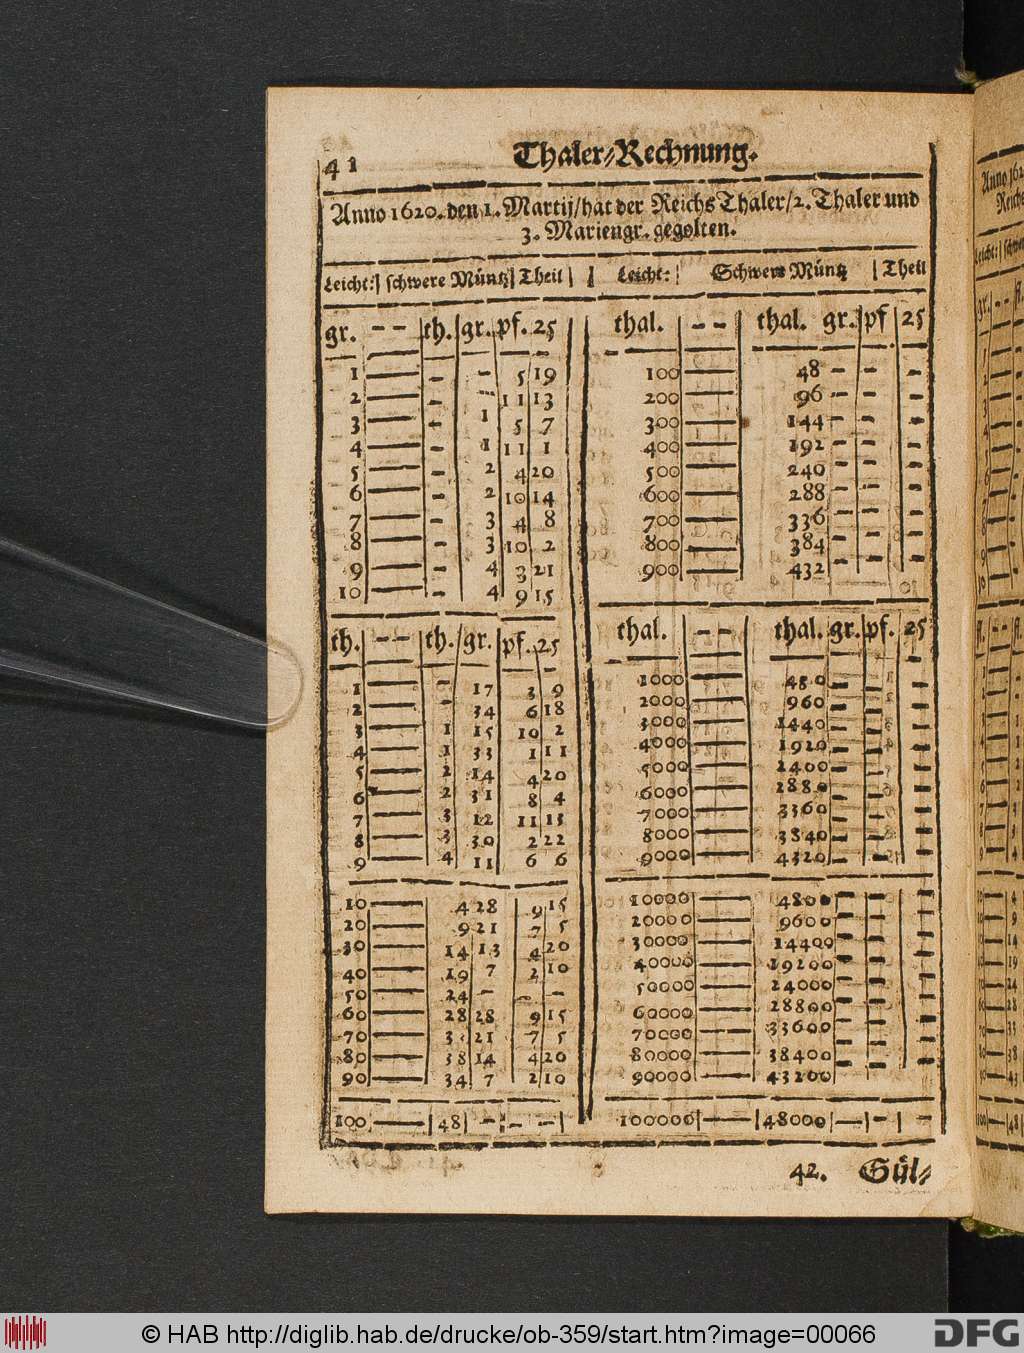 41 Thaler-Rechnung.
Anno 1620. den 1. Martij/hat der Reichs Thaler/2. Thaler und
3. Mariengr. gegolten.
Leicht: schwere Müntz Theil
gr. -- th. gr. pf. 25
1 — - - 5 19
2 — - 11 13
3 — - 1 5 7
4 — - 1 11 1
5 — - 2 4 20
6 — - 2 10 14
7 — - 3 4 8
8 — - 3 10 2
9 — - 4 3 21
10 — - 4 9 15
th. -- th. gr. pf. 25
1 — - 17 3 9
2 — - 34 6 18
3 — 1 15 10 2
4 — 1 33 1 11
5 — 2 14 4 20
6 — 2 31 8 4
7 — 3 12 11 13
8 — 3 30 2 22
9 — 4 11 6 6
10 — 4 28 9 15
20 — 9 21 7 5
30 — 14 13 4 20
40 — 19 7 2 10
50 — 24 - - -
60 — 28 28 9 15
70 — 3 21 7 5
80 — 38 14 4 20
90 — 34 7 2 10
100 — 48 - - -
Leicht: Schwere Müntz Theil
thal. -- thal. gr. pf 25
100 — 48 - - -
200 — 96 - - -
300 — 144 - - -
400 — 192 - - -
500 — 240 - - -
600 — 288 - - -
700 — 336 - - -
800 — 384 - - -
900 — 432 - - -
thal. -- thal. gr. pf. 25
1000 — 480 - - -
2000 — 960 - - -
3000 — 1440 - - -
4000 — 1920 - - -
5000 — 2400 - - -
6000 — 2880 - - -
7000 — 3360 - - -
8000 — 3840 - - -
9000 — 4320 - - -
10000 — 4800 - - -
20000 — 9600 - - -
30000 — 14400 - - -
40000 — 19200 - - -
50000 — 24000 - - -
60000 — 28800 - - -
70000 — 33600 - - -
80000 — 38400 - - -
90000 — 43200 - - -
100000 — 48000 — - -
42. Gül-
© HAB http://diglib.hab.de/drucke/ob-359/start.htm?image=00066
DFG